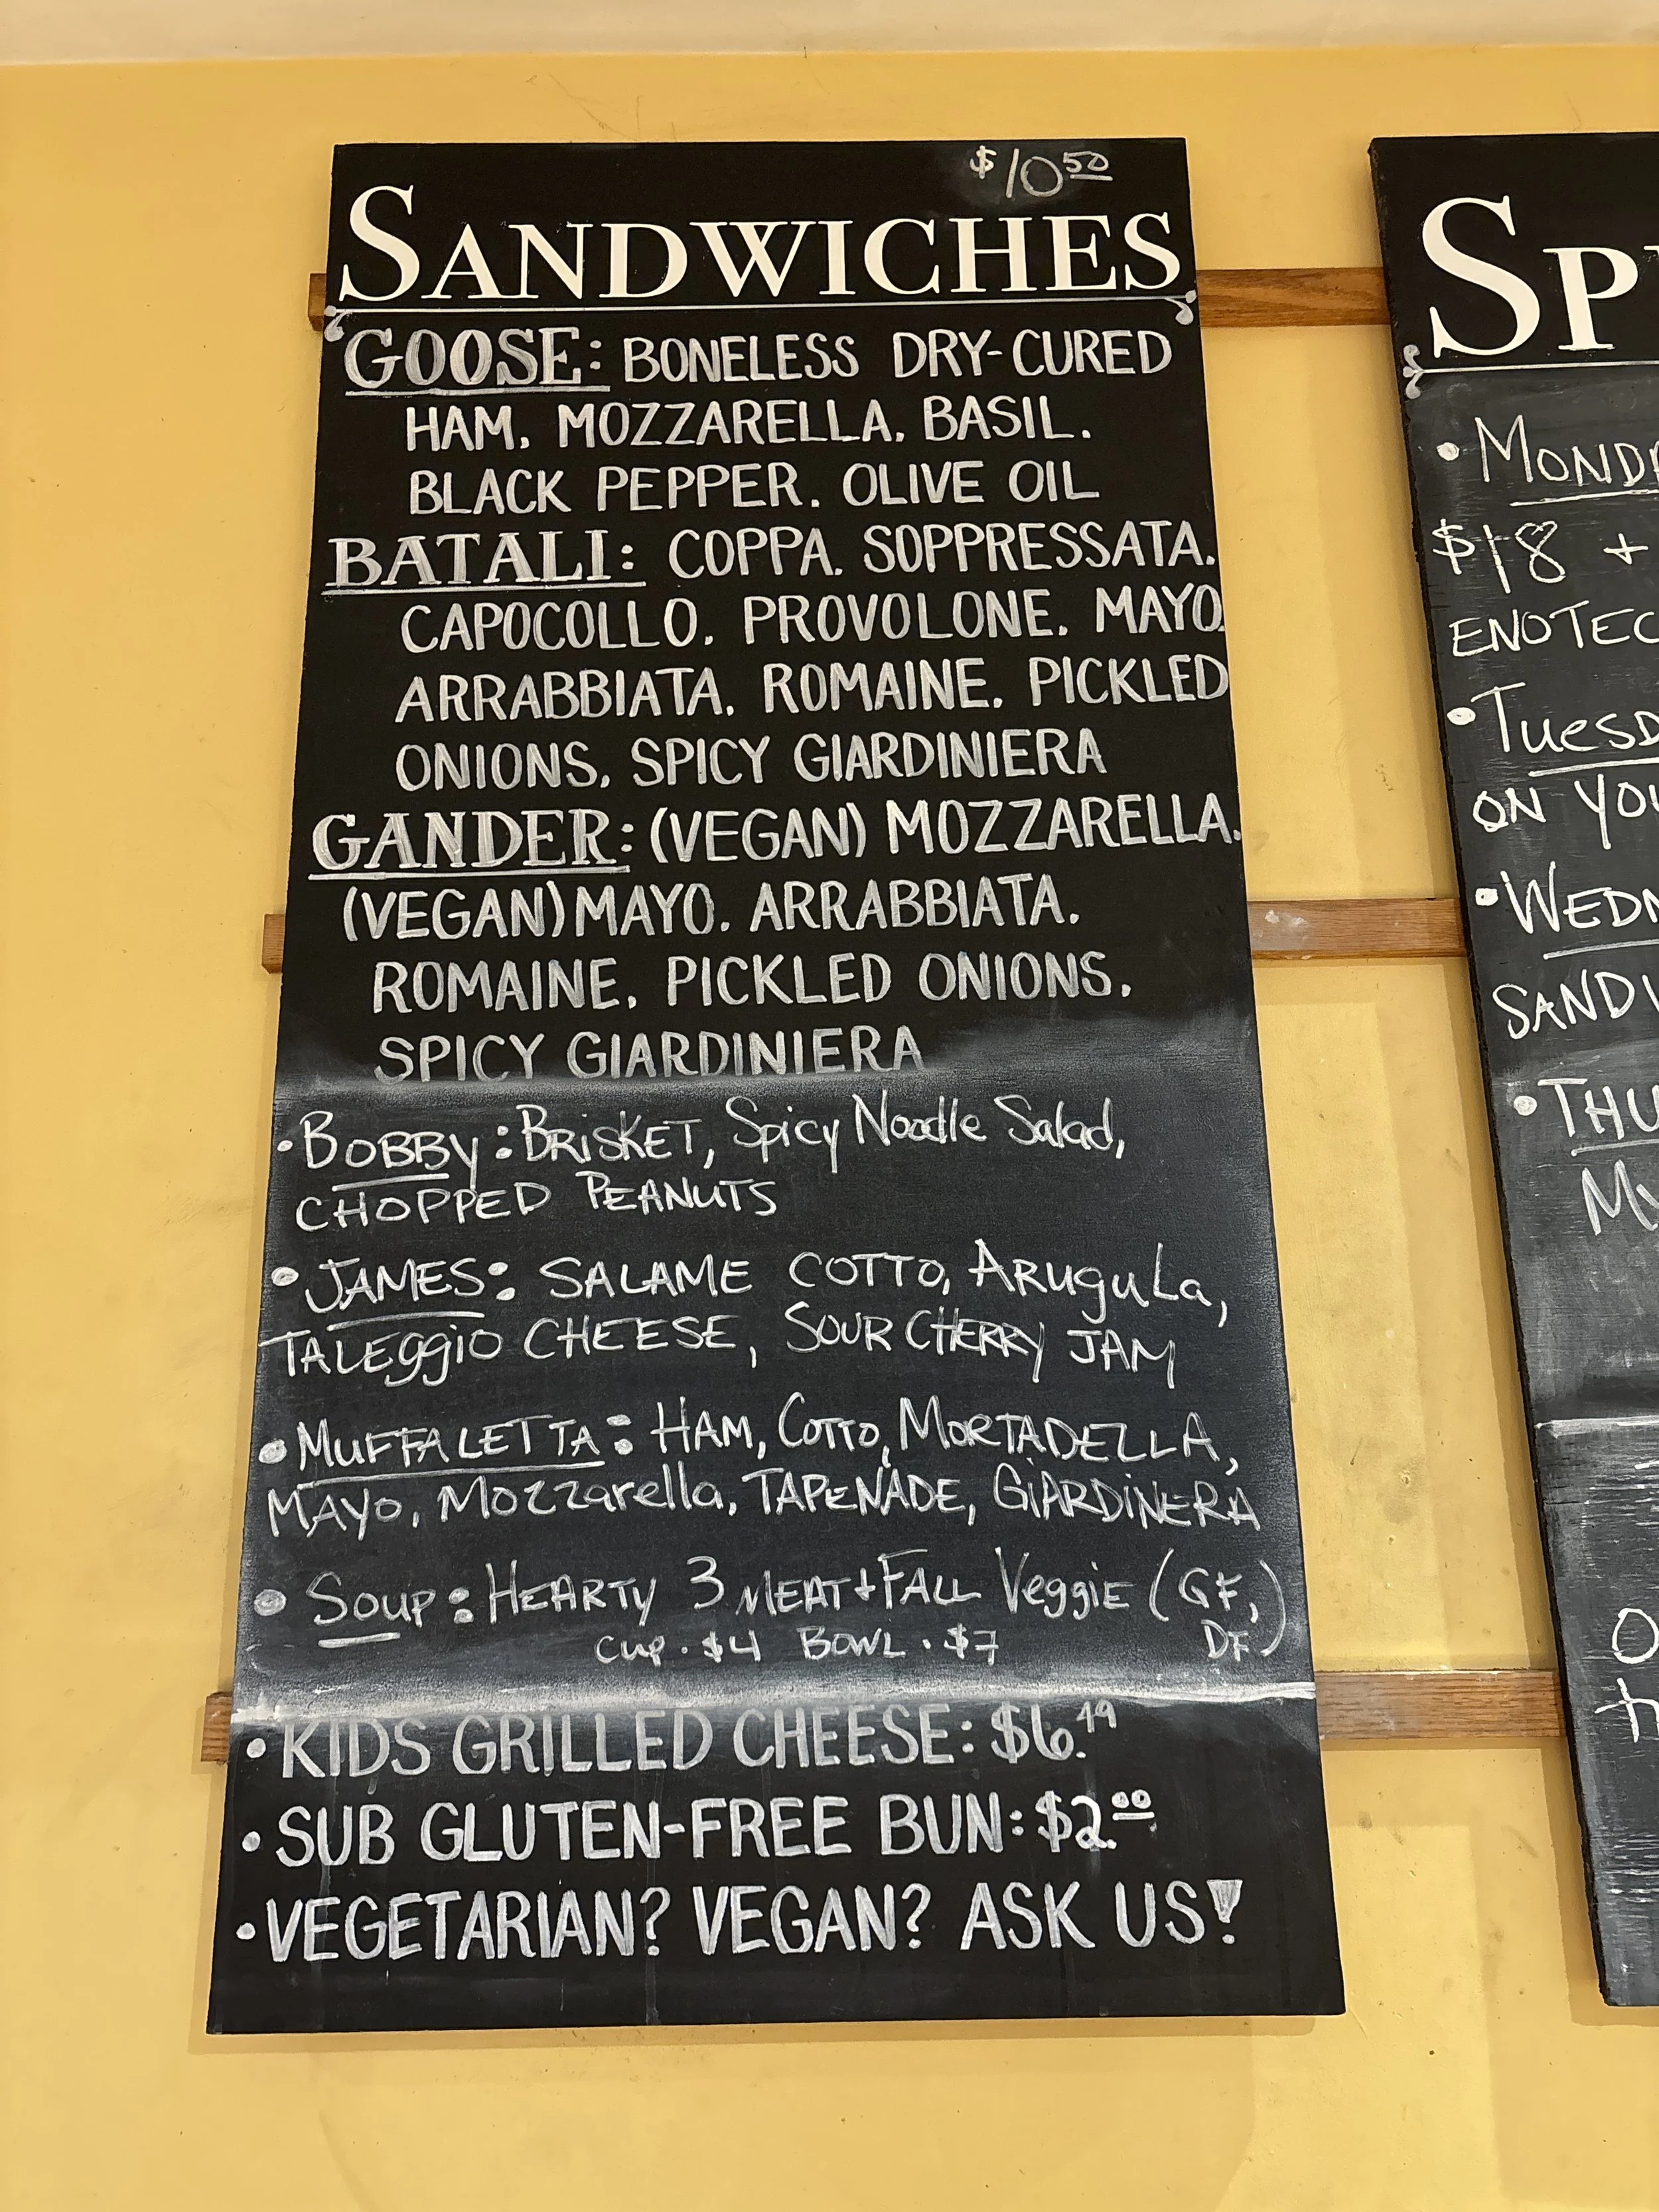 $10 50
SANDWICHES
GOOSE: BONELESS DRY-CURED
HAM. MOZZARELLA. BASIL.
BLACK PEPPER. OLIVE OIL
BATALI: COPPA. SOPPRESSATA.
CAPOCOLLO. PROVOLONE. MAYO.
ARRABBIATA. ROMAINE. PICKLED
ONIONS. SPICY GIARDINIERA
GANDER: (VEGAN) MOZZARELLA.
(VEGAN) MAYO. ARRABBIATA.
ROMAINE. PICKLED ONIONS.
SPICY GIARDINIERA
• BOBBY: BRISKET, Spicy Noodle Salad,
CHOPPED PEANUTS
• JAMES: SALAME COTTO, ARuguLa,
TALEggio CHEESE, SOUR CHERRY JAM
• MUFFALETTA: HAM, COTTO, MORTADELLA,
MAYO, Mozzarella, TAPENADE, GiARDiNERA
• SOUP: HEARTY 3 MEAT + FALL VeggiE (GF,
DF)
Cup · $4 BOWL · $7
• KIDS GRILLED CHEESE: $6.49
• SUB GLUTEN-FREE BUN: $2.00
• VEGETARIAN? VEGAN? ASK US!
$18 +
ON